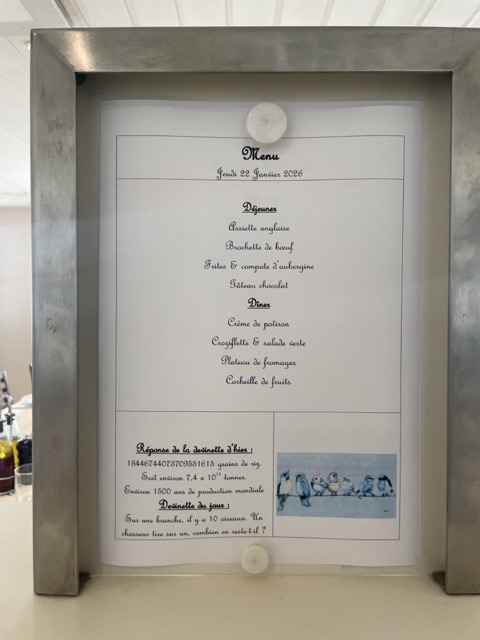 Menu
Jeudi 22 Janvier 2026
Déjeuner
Assiette anglaise
Brochette de bœuf
Frites & compote d'aubergine
Gâteau chocolat
Dîner
Crème de potiron
Croziflette & salade verte
Plateau de fromages
Corbeille de fruits
Réponse de la devinette d'hier :
18446744073709551615 grains de riz.
Soit environ 7,4 x 10¹¹ tonnes.
Environ 1500 ans de production mondiale
Devinette du jour :
Sur une branche, il y a 10 oiseaux. Un
chasseur tire sur un, combien en reste-t-il ?